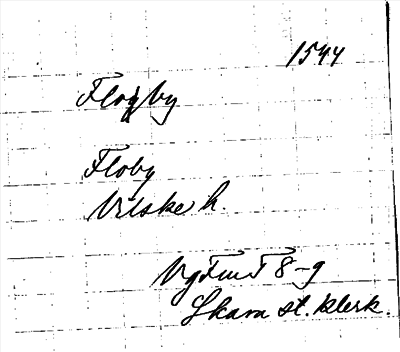 1544
Flogby
Floby
Vilske h.
VgFmT 8-9
Skara st. klerk.